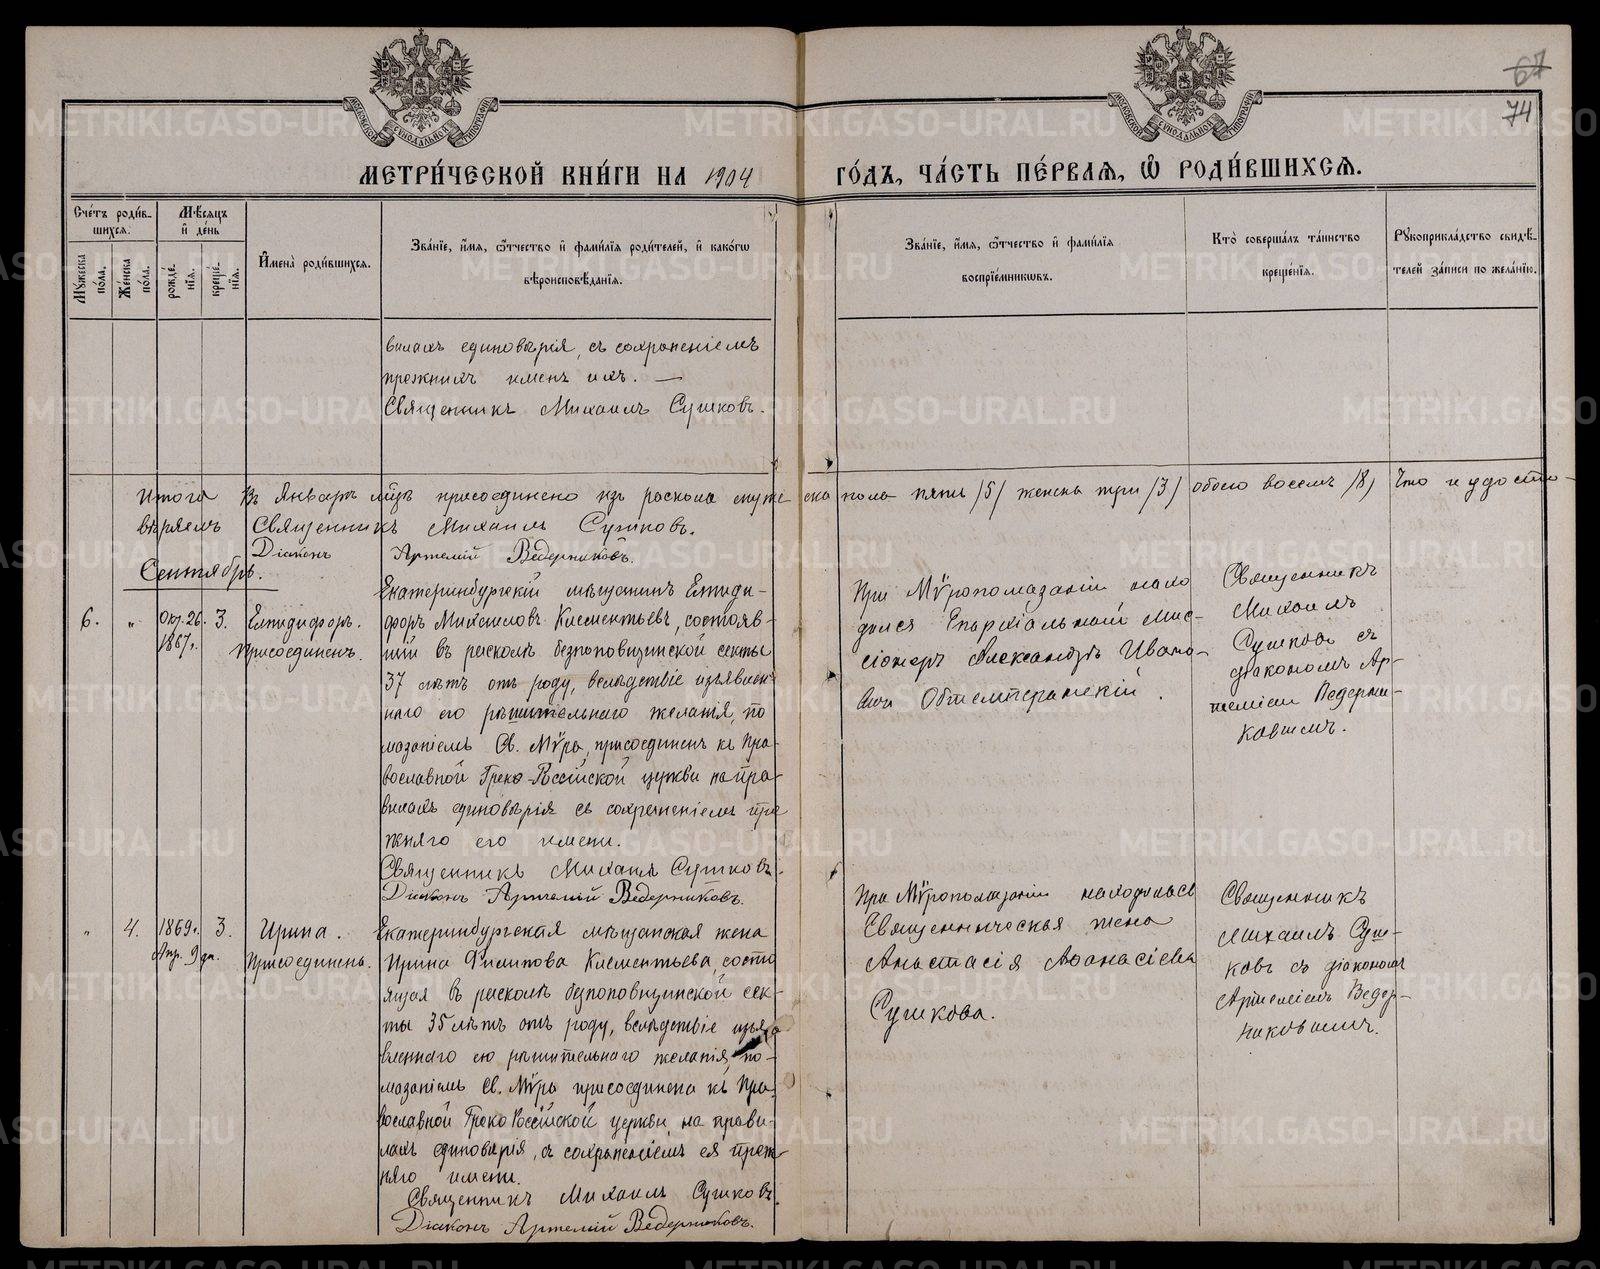 67
74
МЕТРИ́ЧЕСКОЙ КНИ́ГИ НА 1904 ГО́ДЪ, ЧА́СТЬ ПЕ́РВАЯ, Ѡ҆ РОДИ́ВШИХСЯ.
Сче́тъ роди́в-
шихся.
Му́жеска по́ла.
Же́нска по́ла.
Мѣ́сяцъ
и҆ де́нь
рожде́-
нїя.
креще́-
нїя.
И҆мена̀ роди́вшихся.
Зва́нїе, и҆́мя, ѻ҆́тчество и҆ фами́лїя роди́телей, и҆ како́гѡ
вѣроисповѣ́данїя.
Зва́нїе, и҆́мя, ѻ҆́тчество и҆ фами́лїя
воспрїе́мникѡвъ.
Кто̀ соверша́лъ та́инство
креще́нїя.
Рꙋкоприкла́дство свидѣ́-
телей за́писи по жела́нїю.
вилахъ единовѣрія, съ сохраненіемъ
прежнихъ именъ ихъ. —
Священникъ Михаилъ Сушковъ.
Итого въ Январѣ лицъ присоединено изъ раскола муже ска пола пять /5/ женска три /3/ обоего восемь /8/ Что и удосто-
вѣряемъ Священникъ Михаилъ Сушковъ.
Діаконъ Артемій Ведерниковъ.
Сентябрь.
6.
"
Окт. 26.
1867 г.
3.
Елпидифоръ.
Присоединенъ.
Екатеринбургскій мѣщанинъ Елпиди-
форъ Михаиловъ Клементьевъ, состояв-
шій въ расколѣ безпоповщинской секты
37 лѣтъ отъ роду, вслѣдствіе изъявлен-
наго его рѣшительнаго желанія, по
мазаніемъ Св. Мѵра, присоединенъ къ Пра-
вославной Греко-Россійской церкви на пра-
вилахъ единовѣрія съ сохраненіемъ пре
жняго его имени.
Священникъ Михаилъ Сушковъ.
Діаконъ Артемій Ведерниковъ.
При Мѵропомазаніи нахо
дился Епархіальный Мис-
сіонеръ Александръ Ивано-
вичъ Обтемперанскій.
Священникъ
Михаилъ
Сушковъ съ
діакономъ Ар-
теміемъ Ведерни-
ковымъ.
"
4.
1869 г.
Апр. 9 дн.
3.
Ирина.
Присоединена.
Екатеринбургская мѣщанская жена
Ирина Филипова Клементьева, состо
ящая въ расколѣ безпоповщинской сек-
ты 35 лѣтъ отъ роду, вслѣдствіе изъя
вленнаго ею рѣшительнаго желанія, по-
мазаніемъ Св. Мѵра присоединена къ Пра-
вославной Греко Россійской церкви на прави-
лахъ единовѣрія, съ сохраненіемъ ея преж-
няго имени.
Священникъ Михаилъ Сушковъ.
Діаконъ Артемій Ведерниковъ.
При Мѵропомазаніи находилась
Священническая жена
Анастасія Аѳанасіева
Сушкова.
Священникъ
Михаилъ Суш-
ковъ съ діакономъ
Артеміемъ Ведер-
никовымъ.
METRIKI.GASO-URAL.RU